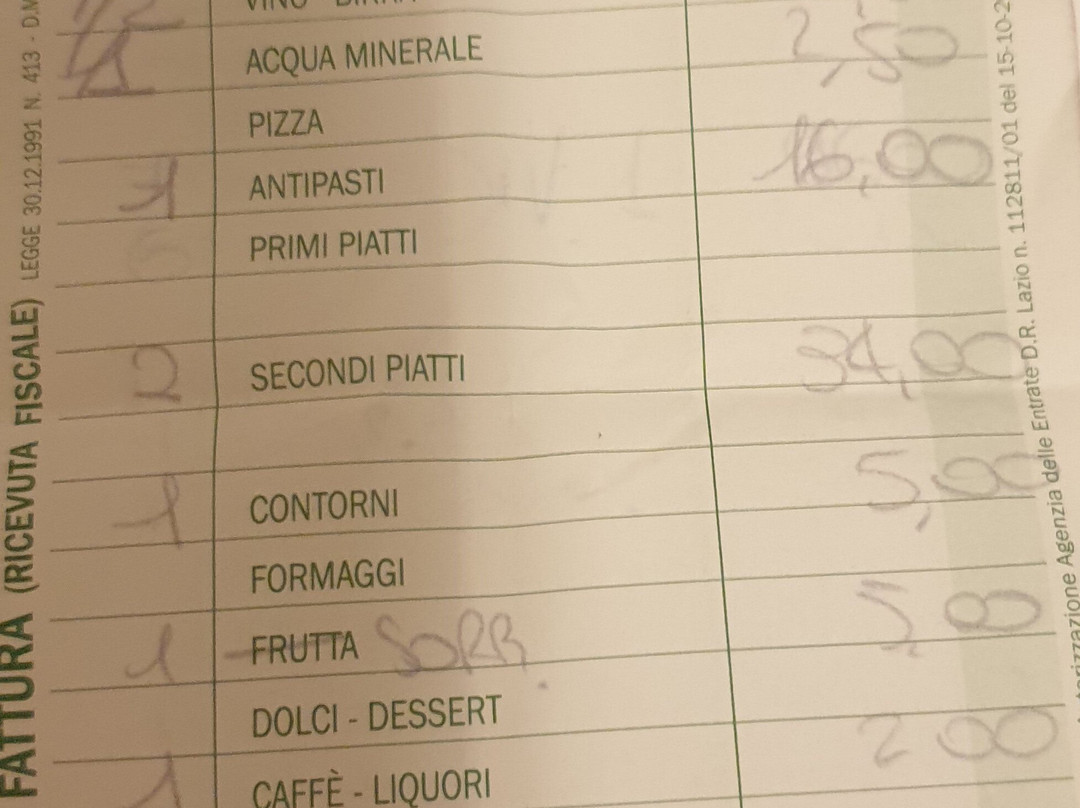 VINO - BIRRA
1 ACQUA MINERALE 2,50
PIZZA
1 ANTIPASTI 16,00
PRIMI PIATTI
2 SECONDI PIATTI 34,00
1 CONTORNI 5,00
FORMAGGI
1 FRUTTA SORB. 5,00
DOLCI - DESSERT
1 CAFFÈ - LIQUORI 2 00
FATTURA (RICEVUTA FISCALE) LEGGE 30.12.1991 N. 413 - D.M
Autorizzazione Agenzia delle Entrate D.R. Lazio n. 112811/01 del 15-10-2